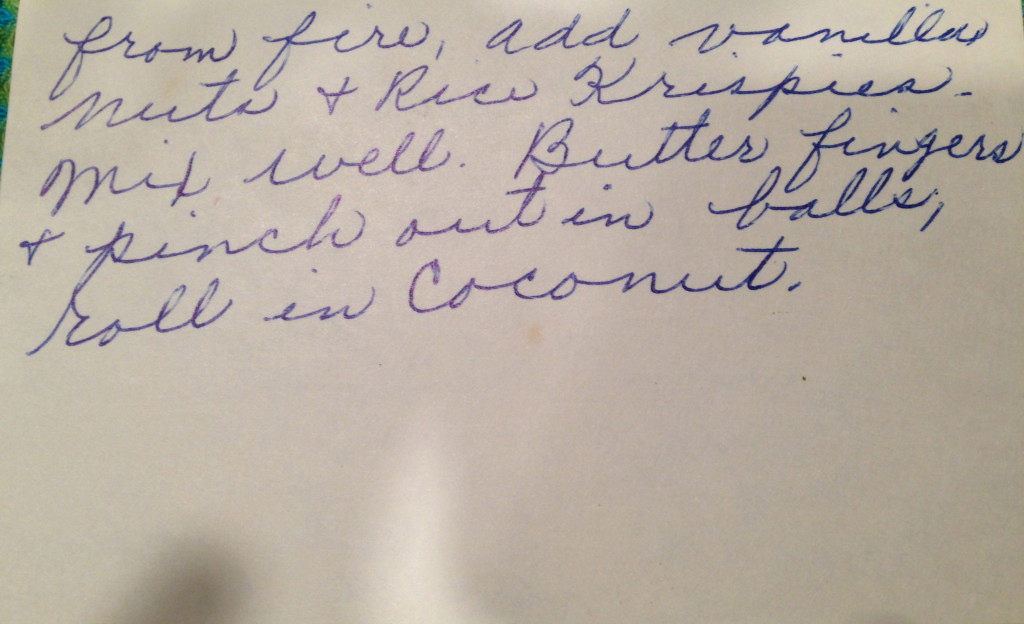 from fire, add vanilla
nuts + Rice Krispies.
Mix well. Butter fingers
+ pinch out in balls,
roll in Coconut.